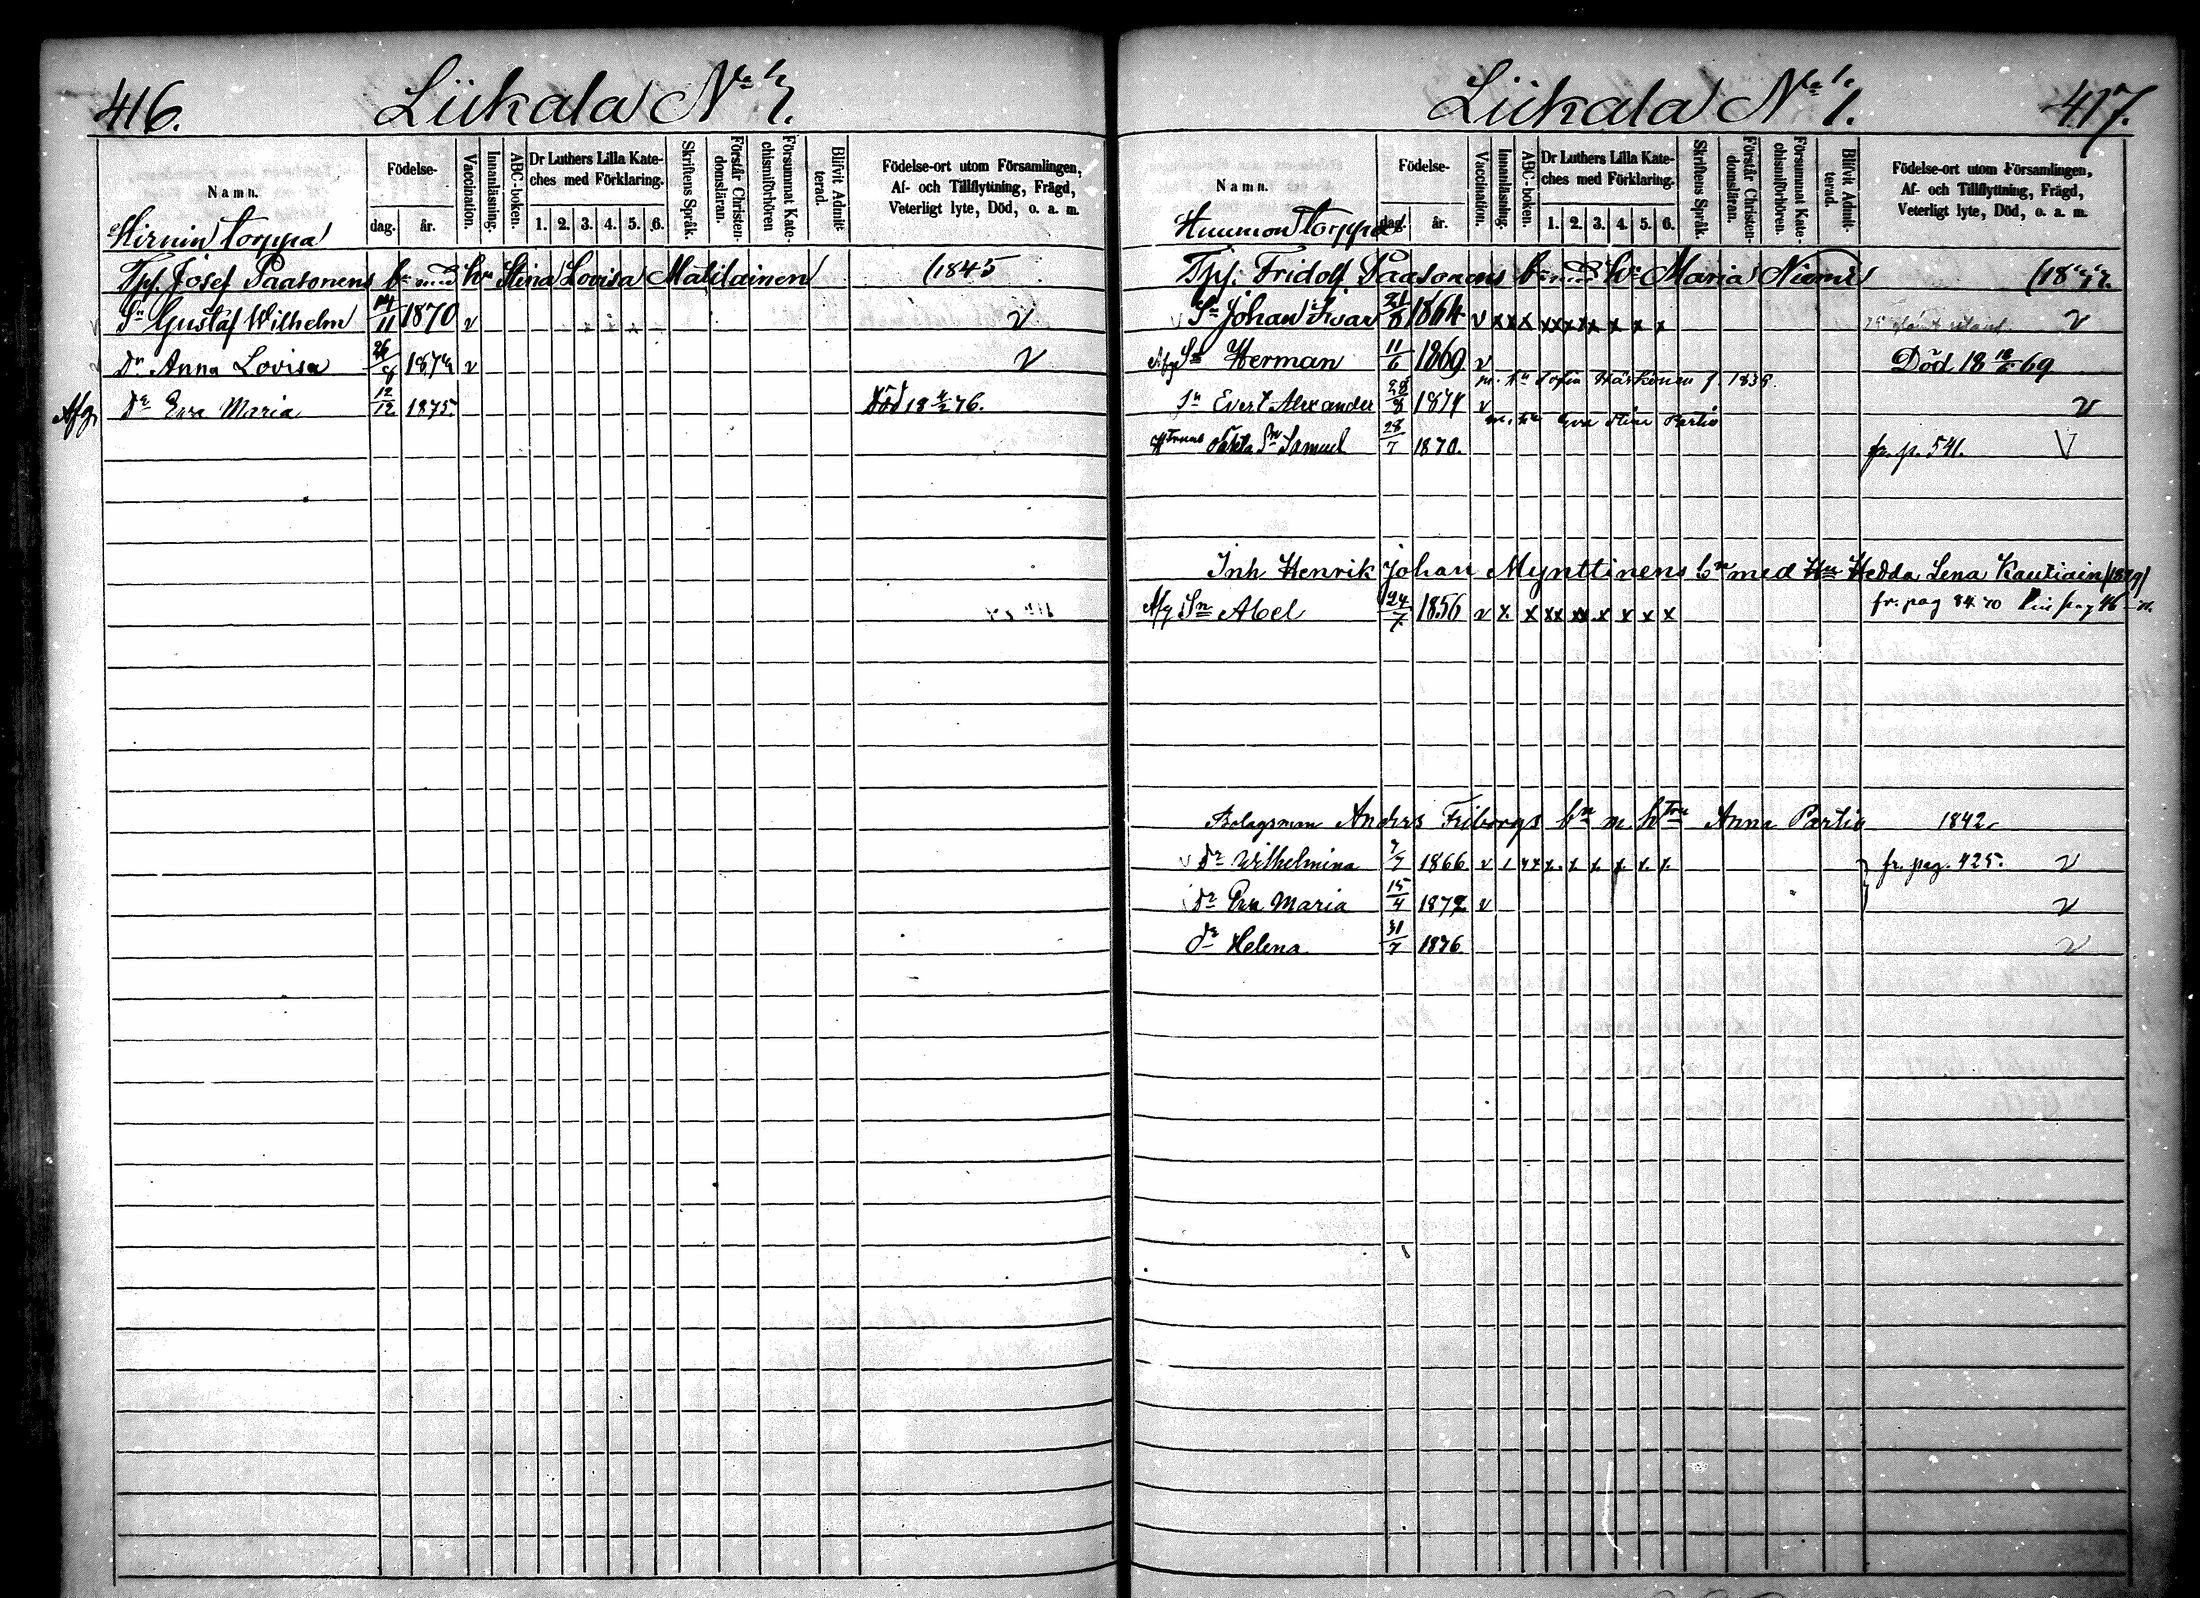 416.
Liikala No 1.
Namn.
Födelse-
dag.
år.
Vaccination.
Innanläsning.
ABC-boken.
Dr Luthers Lilla Kate-
ches med Förklaring.
1. 2. 3. 4. 5. 6.
Skriftens Språk.
Förstår Christen-
domsläran.
Försummat Kate-
chismiförhören
Blifvit Admit-
terad.
Födelse-ort utom Församlingen,
Af- och Tillflyttning, Frägd,
Veterligt lyte, Död, o. a. m.
Hirnin torppa
Tpf. Josef Paasonens bn med hu Stina Lovisa Matilainen (1845
Sn Gustaf Wilhelm 14/11 1870 v v
Dr Anna Lovisa v v
Afg. Dr Eva Maria 12/12 1875. Död 18 76.
417.
Liikala No 1.
Namn.
Födelse-
dag.
år.
Vaccination.
Innanläsning.
ABC-boken.
Dr Luthers Lilla Kate-
ches med Förklaring.
1. 2. 3. 4. 5. 6.
Skriftens Språk.
Förstår Christen-
domsläran.
Försummat Kate-
chismiförhören.
Blifvit Admit-
terad.
Födelse-ort utom Församlingen,
Af- och Tillflyttning, Frägd,
Veterligt lyte, Död, o. a. m.
torppa
Tpf. Fridolf Paasonens bn med hu Maria Niemi
Sn Johan Ivar 21/8 1864 v x x x x x x x x x x x v
Afg Sn Herman 11/6 1869 v Död 18 18/6 69
m. hu Sofia Härkönen f. 1838.
Sn Evert Alexander 28/8 1871 v v
m. hu Eva Stina Partio
Sn Samuel 28/7 1870. fr. p. 541. V
Inh Henrik Johan Mynttinens bn med Hu Hedda Lena
Afg Sn Abel 24/7 1856 v x x x x x x x x x x fr. pag 84 70
Bolagsman Anders Friborgs bn m. htru Anna Partio 1842.
v Dr Wilhelmina 7/7 1866 v x x x x x x x x fr. pag. 425. v
Dr Eva Maria 15/4 1872 v v
dr Helena 31/7 1876 v